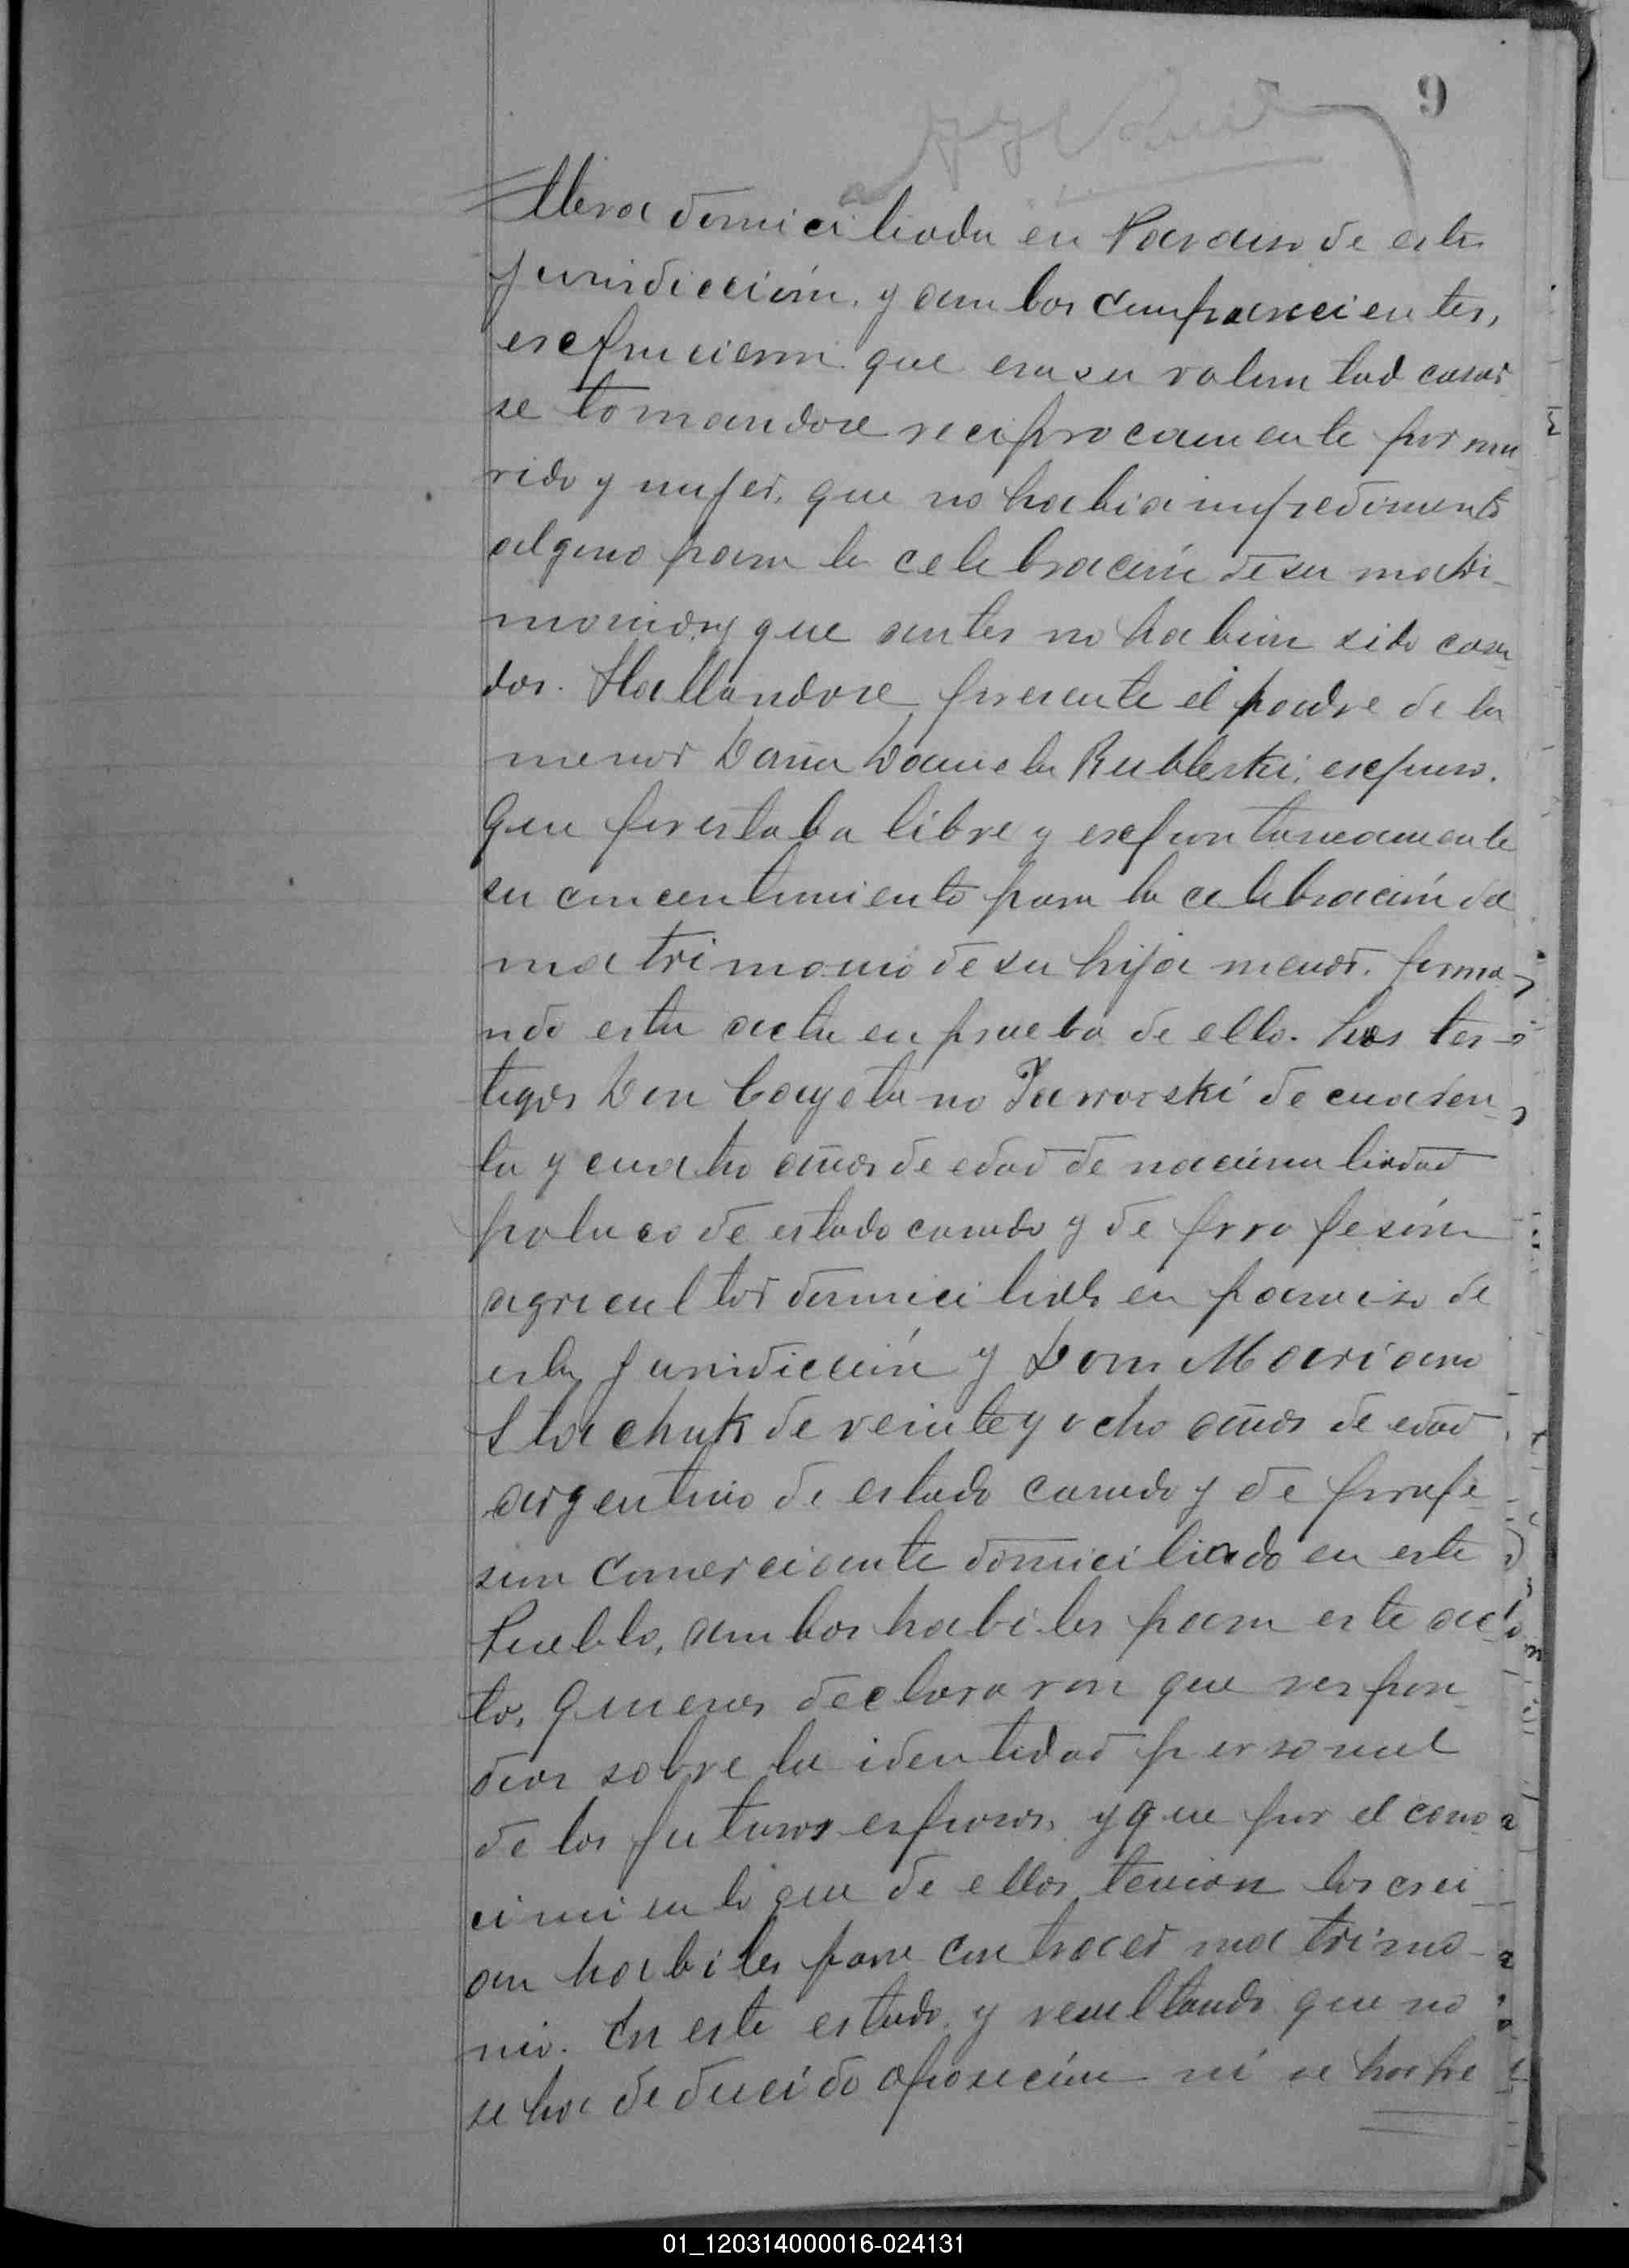 9
llera domiciliada en Paraiso de esta
jurisdicción, y ambos comparecientes,
exspucieron que era su voluntad casar
se tomandose reciprocamente por ma
rido y mujer, que no habia impedimento
alguno para la celebración de su matri-
monio, y que antes no habian sido casa
dos. Hallandose presente el padre de la
menor Doña Daniela Rubleski, exspuso.
Que prestaba libre y exspontaneamente
su concentimiento para la celebración del
matrimonio de su hija menor. firma-
ndo esta acta en prueba de ello. Los tes-
tigos Don Cayetano Jaworski de cuaren
ta y cuatro años de edad de nacionalidad
polaco de estado casado y de profesión
agricultor domiciliado en paraiso de
esta jurisdicción y Don Mariano
Stachuk de veinte y ocho años de edad
argentino de estado casado y de profe
sion Comerciante domiciliado en este
Pueblo, ambos habiles para este ac
to, Quienes declararon que respon-
dian sobre la identidad personal
de los futuros esposos, y que por el cono
cimiento que de ellos tenian los crei
an habiles para contraer matrimo-
nio. En este estado y resultando que no
se ha deducido oposición ni se ha pre
01_120314000016-024131